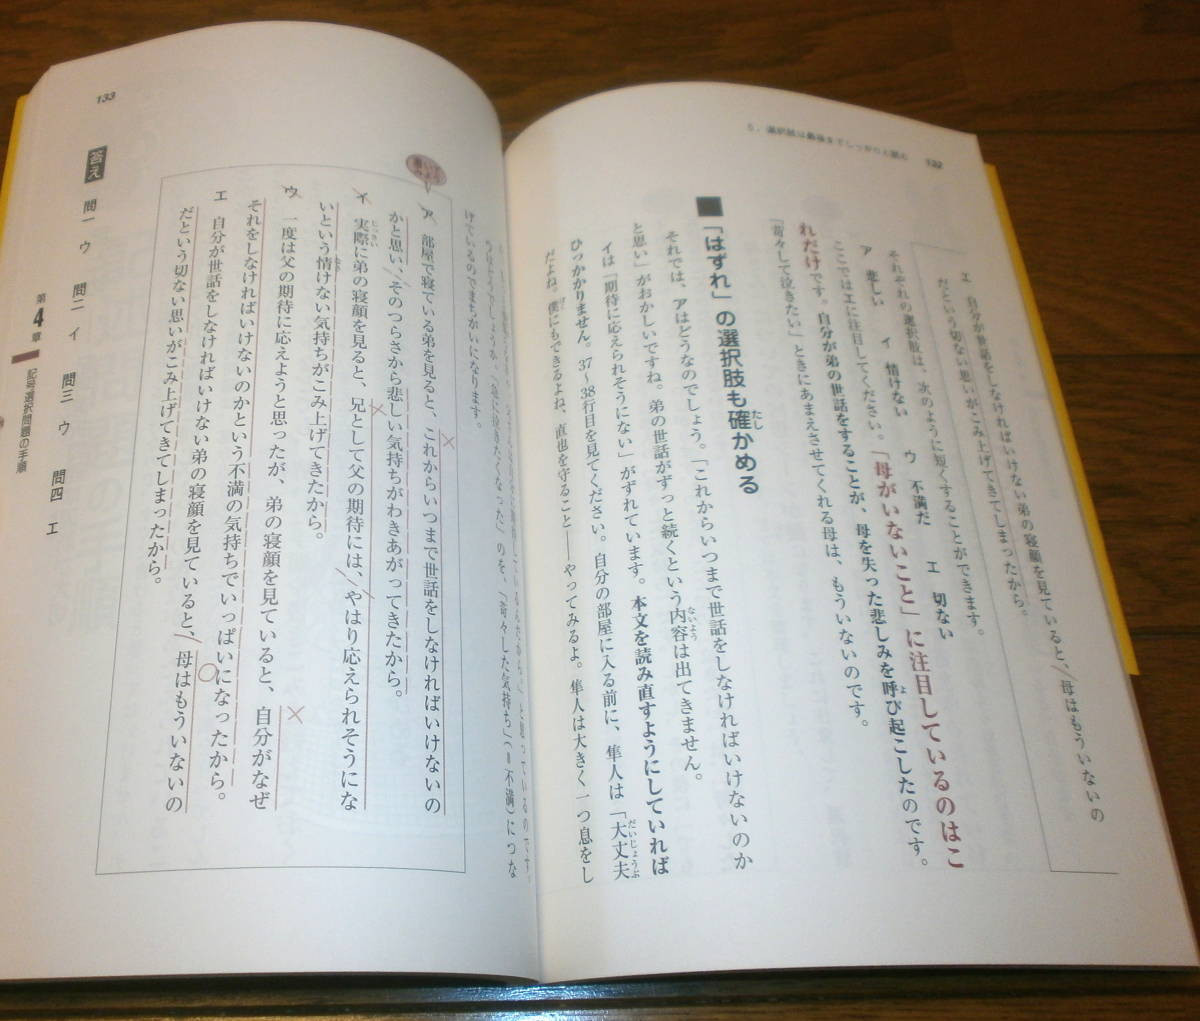 132
5. 選択肢は最後までしっかりと読む
エ 自分が世話をしなければいけない弟の寝顔を見ていると、母はもういないの
だという切ない思いがこみ上げてきてしまったから。
それぞれの選択肢は、次のように短くすることができます。
ア 悲しい イ 情けない ウ 不満だ エ 切ない
ここではエに注目してください。「母がいないこと」に注目しているのはこ
れだけです。自分が弟の世話をすることが、母を失った悲しみを呼び起こしたのです。
「苛々して泣きたい」ときにあまえさせてくれる母は、もういないのです。
■「はずれ」の選択肢も確かめる
それでは、アはどうなのでしょう。「これからいつまで世話をしなければいけないのか
と思い」がおかしいですね。弟の世話がずっと続くという内容は出てきません。
イは「期待に応えられそうにない」がずれています。本文を読み直すようにしていれば
ひっかかりません。37～38行目を見てください。自分の部屋に入る前に、隼人は「大丈夫
だよね。僕にもできるよね、直也を守ること――やってみるよ。隼人は大きく一つ息をし
と思っているのです。
「急に泣きたくなった」のを、「苛々した気持ち」(=不満)につな
げているのでまちがいになります。
ア 部屋で寝ている弟を見ると、これからいつまで世話をしなければいけないの
かと思い、そのつらさから悲しい気持ちがわきあがってきたから。
イ 実際に弟の寝顔を見ると、兄として父の期待には、やはり応えられそうにな
いという情けない気持ちがこみ上げてきたから。
ウ 一度は父の期待に応えようと思ったが、弟の寝顔を見ていると、自分がなぜ
それをしなければいけないのかという不満の気持ちでいっぱいになったから。
エ 自分が世話をしなければいけない弟の寝顔を見ていると、母はもういないの
だという切ない思いがこみ上げてきてしまったから。
答え 問一 ウ 問二 イ 問三 ウ 問四 エ
133
第4章 記号選択問題の手順